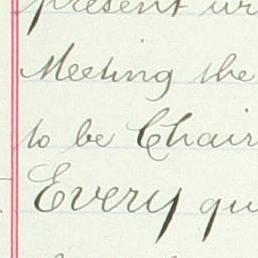 present
Meeting the
to be Chair
Every qu